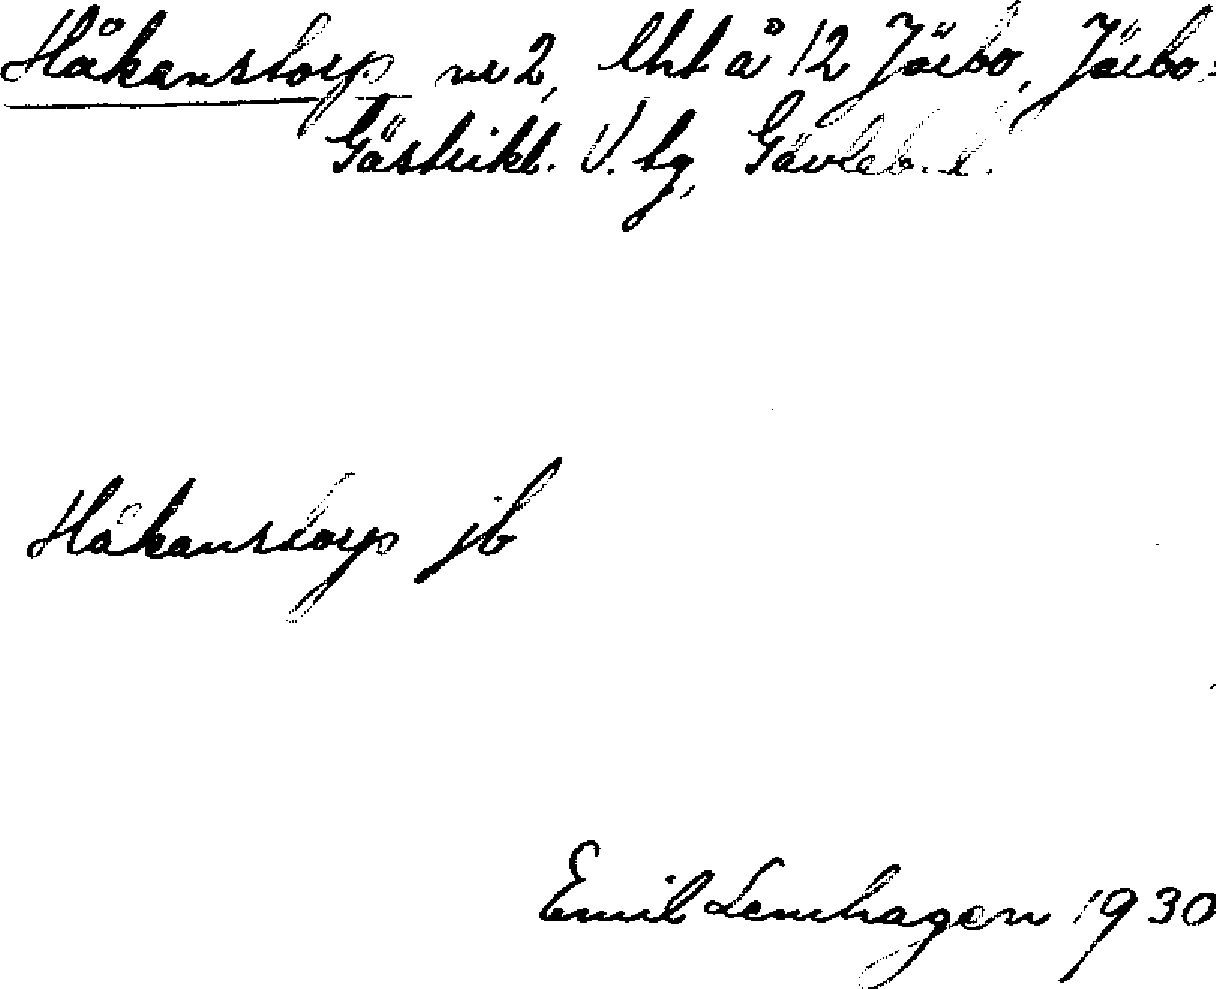 Håkanstorp nr 2, lht å 12 Järbo, Järbo:
Gästrikl. V. tg, Gävleb. l.
Håkanstorp jb
Emil Lemhagen 1930